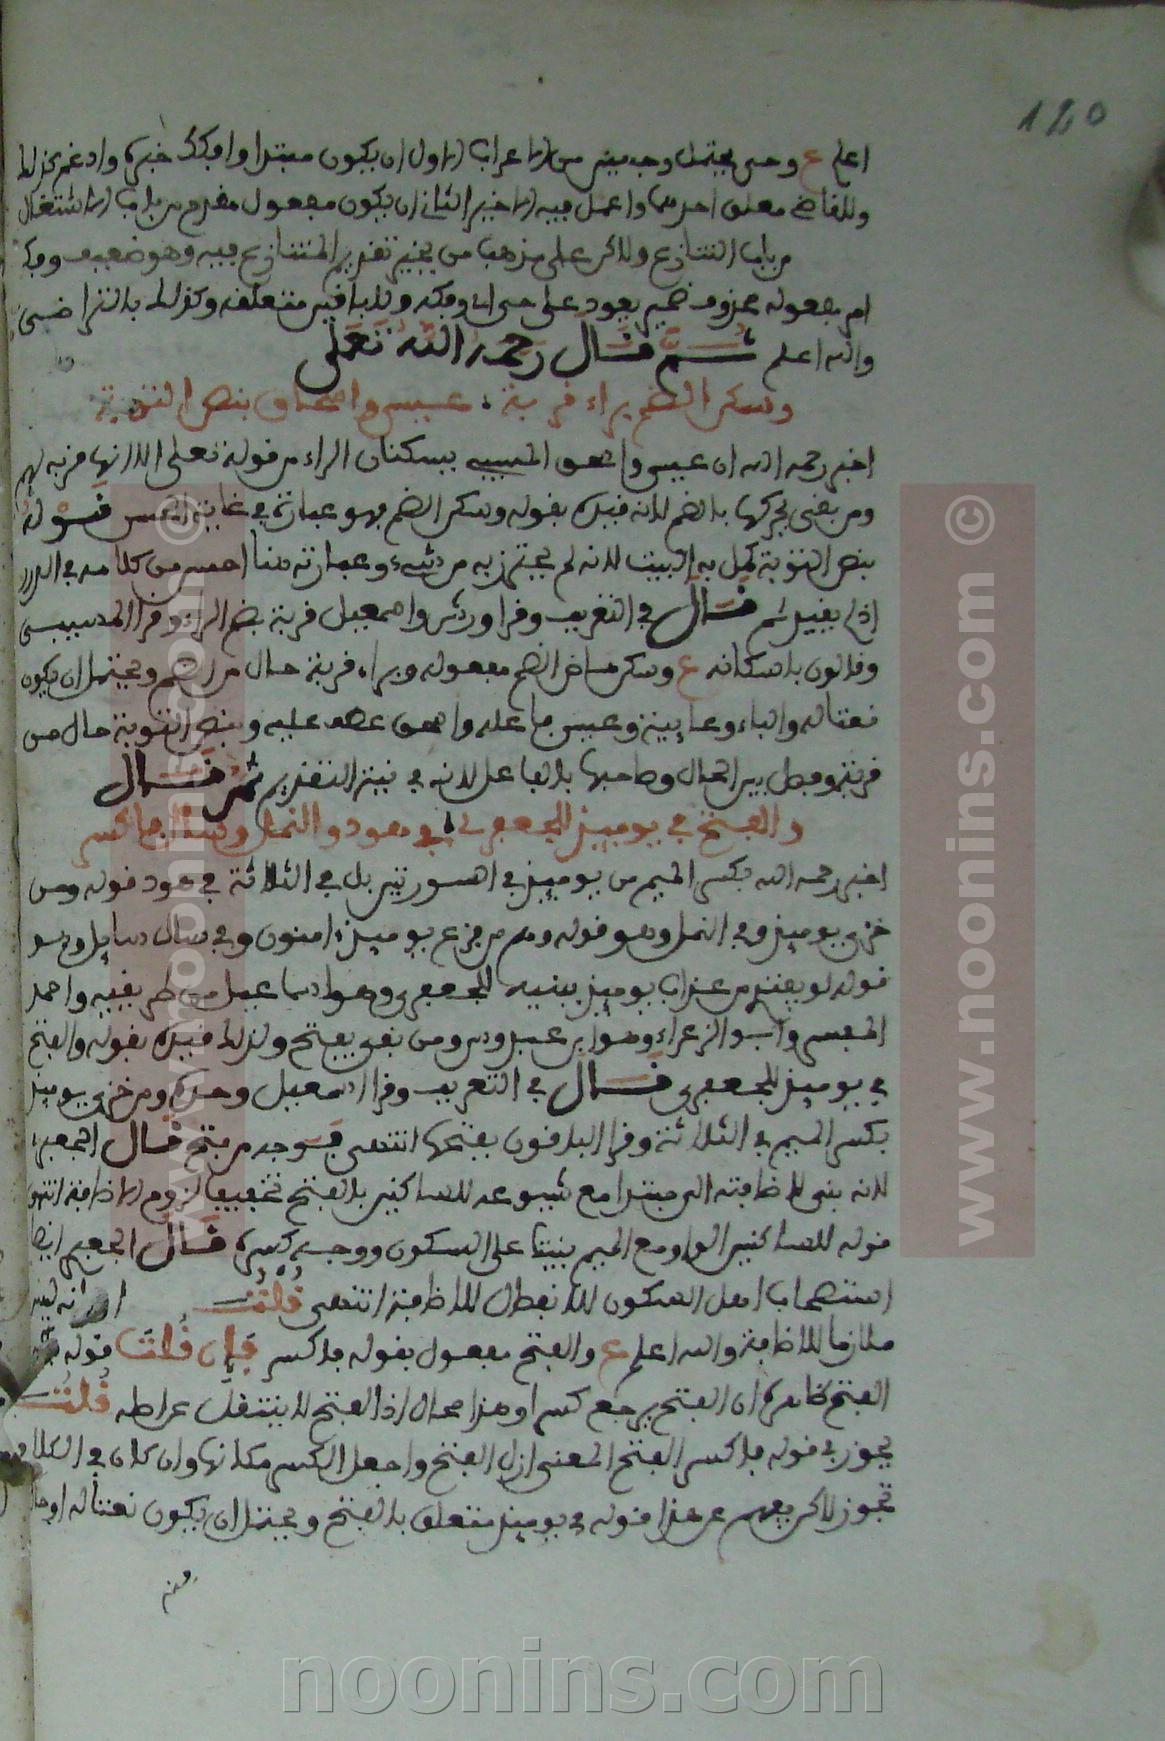 120
اعلم ع وحسى يحتمل وجهين من الاعراب الاول ان يكون مبتدا وافكك خبره وادغم كذلك
وللقاضي معلق احدهما واعمل فيه الاخير الثاني ان يكون مفعول مقدم من باب الاشتغال
من باب التنازع ولاكن على مذهب من يجيز تقديم المتنازع فيه وهو ضعيف وفك
امر مفعوله محذوف ضمير يعود على حسى اي وفكه وللباقين متعلقه وكذلك بالترا ضى
والله اعلم ثم قال رحمه الله تعلى
وسكن الضم براء قربة عيسى واسحاق بنص التوبة
اخبر رحمه الله ان عيسى واسحق المسيبي يسكنان الراء من قوله تعلى الا انها قربة لهم
ومن بقي يحركها بالضم لانه قيده بقوله وسكن الضم فهو عبارة في غاية الحسن قوله
بنص التوبة كمل به البيت لانه لم يحترز به من شيء وعبارته هنا احسن من كلامه في الدرر
اذ لم يقيد ثم قال في التعريف وقرا ورش واسمعيل قربة بضم الراء وقرا المسيبي
وقالون باسكانه ع وسكن ماض الضم مفعوله وبراء قربة حال من الضم ويحتمل ان يكون
نعتا له والباء وعائية وعيسى فاعله واسحق عطف عليه وبنص التوبة حال من
قربة وفصل بين الحال وصاحبها بالفاعل لانه في نية التقديم ثم قال
والفتح في يومئذ للجعفري في هود والنمل وسال فاكسر
اخبر رحمه الله بكسر الميم من يومئذ في السورتين بل في الثلاثة في هود قوله ومن
خزي يومئذ وفي النمل وهو قوله وهم من فزع يومئذ امنون وفي سال سايل وهو
قوله لو يفتدي من عذاب يومئذ ببنيه للجعفري وهو اسماعيل من طريقيه واحمد
المفسر وابو الزعراء وهو ابن عبدوس ومن بقي يفتح ولذلك قيده بقوله والفتح
في يومئذ للجعفري قال في التعريف وقرا اسمعيل وحده ومن خزي يومئذ
بكسر الميم في الثلاثة وقرا الباقون بفتحها انتهى فوجه من فتح قال الجعبري
لانه بني لاضافته الى مبتدا مع شيوعه للساكنين بالفتح تخفيفا لزوم الاضافة انتهى
قوله للساكنين الواو مع الميم بنيتا على السكون ووجه كسره قال الجعبري ايضا
استصحاب اصل السكون للانفصال للاضافة انتهى قلت
ملازما للاضافة والله اعلم ع والفتح مفعول بقوله فاكسر فان قلت قوله
الفتح ظاهره ان الفتح يرجع كسرا وهذا محال اذ الفتح لا ينتقل عن اصله قلت
يجوز في قوله فاكسر الفتح المعنى ازل الفتح واجعل الكسر مكانها وان كان في الكلام
تجوز لاكن يفهم عن هذا قوله في يومئذ متعلق بالفتح ويحتمل ان يكون نعتا له او حا
www.noonins.com ©
www.noonins.com ©
noonins.com